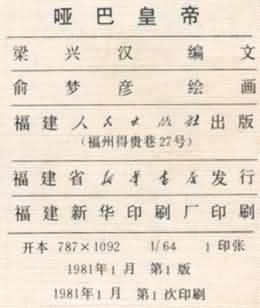 哑巴皇帝
梁兴汉 编文
俞梦彦 绘画
福建人民出版社出版
(福州得贵巷27号)
福建省新华书店发行
福建新华印刷厂印刷
开本 787×1092 1/64 1印张
1981年1月 第1版
1981年1月 第1次印刷